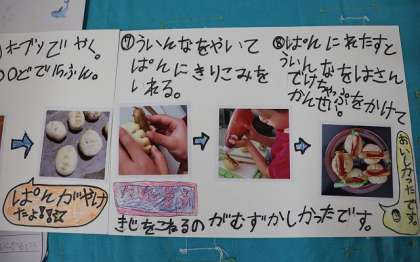 オーブンでやく。
○どで15ふん。
⑦ういんなをやいて
ぱんにきりこみを
いれる。
⑧ぱんにれたすと
ういんなをはさん
でけちゃぷをかけて
かんせい。
ぱんがやけ
たよ
きじをこねるの
がむずかしかったです。
おいしかったです